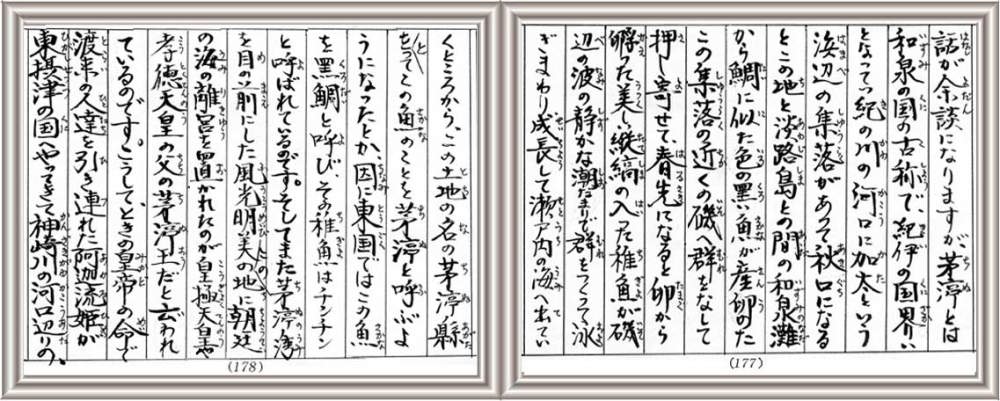 話が余談になりますが、茅渟とは
和泉の国の古称で、紀伊の国界い
となってい紀の川の河口に加太という
浜辺の集落があって秋口になる
とこの地と淡路島との間の和泉灘
から鯛に似た色の黒い魚が産卵のた
この集落の近くの磯へ群をなして
押し寄せて春先になると卵から
孵った美しい縦縞の入った稚魚が磯
辺の波の静かな潮だまりで群をつくって泳
ぎまわり成長して瀬戸内の海へ出てい
(177)
くところから、この土地の名の茅渟縣
をとってこの魚のことを茅渟と呼ぶよ
うになったとか、因に東国ではこの魚
を黒鯛と呼び、その稚魚はチンチン
と呼ばれているのです。そしてまた茅渟湾
を目の前にした風光明美の地に朝廷
の海の離宮を置かれたのが皇極天皇や
孝徳天皇の父の茅渟王だと云われ
ているのです。こうして、ときの皇帝の命で
渡来の人達を引き連れた阿迦流姫が
東摂津の国へやってきて神崎川の河口辺りの、
(178)